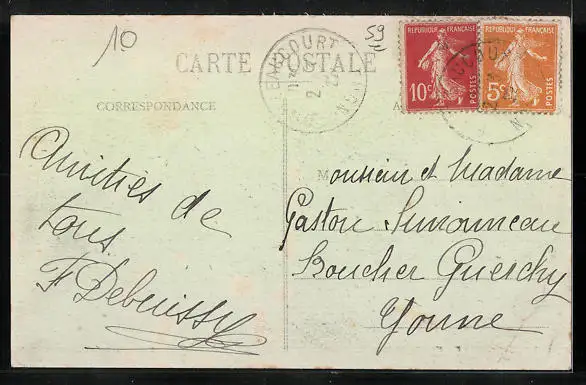 10
59
CARTE POSTALE
REPUBLIQUE FRANÇAISE
10c
POSTES
REPUBLIQUE FRANÇAISE
5c
POSTES
CORRESPONDANCE
Amitiés de
tous
F Debuissy
Monsieur et Madame
Gaston
Boucher Guerchy
Yonne